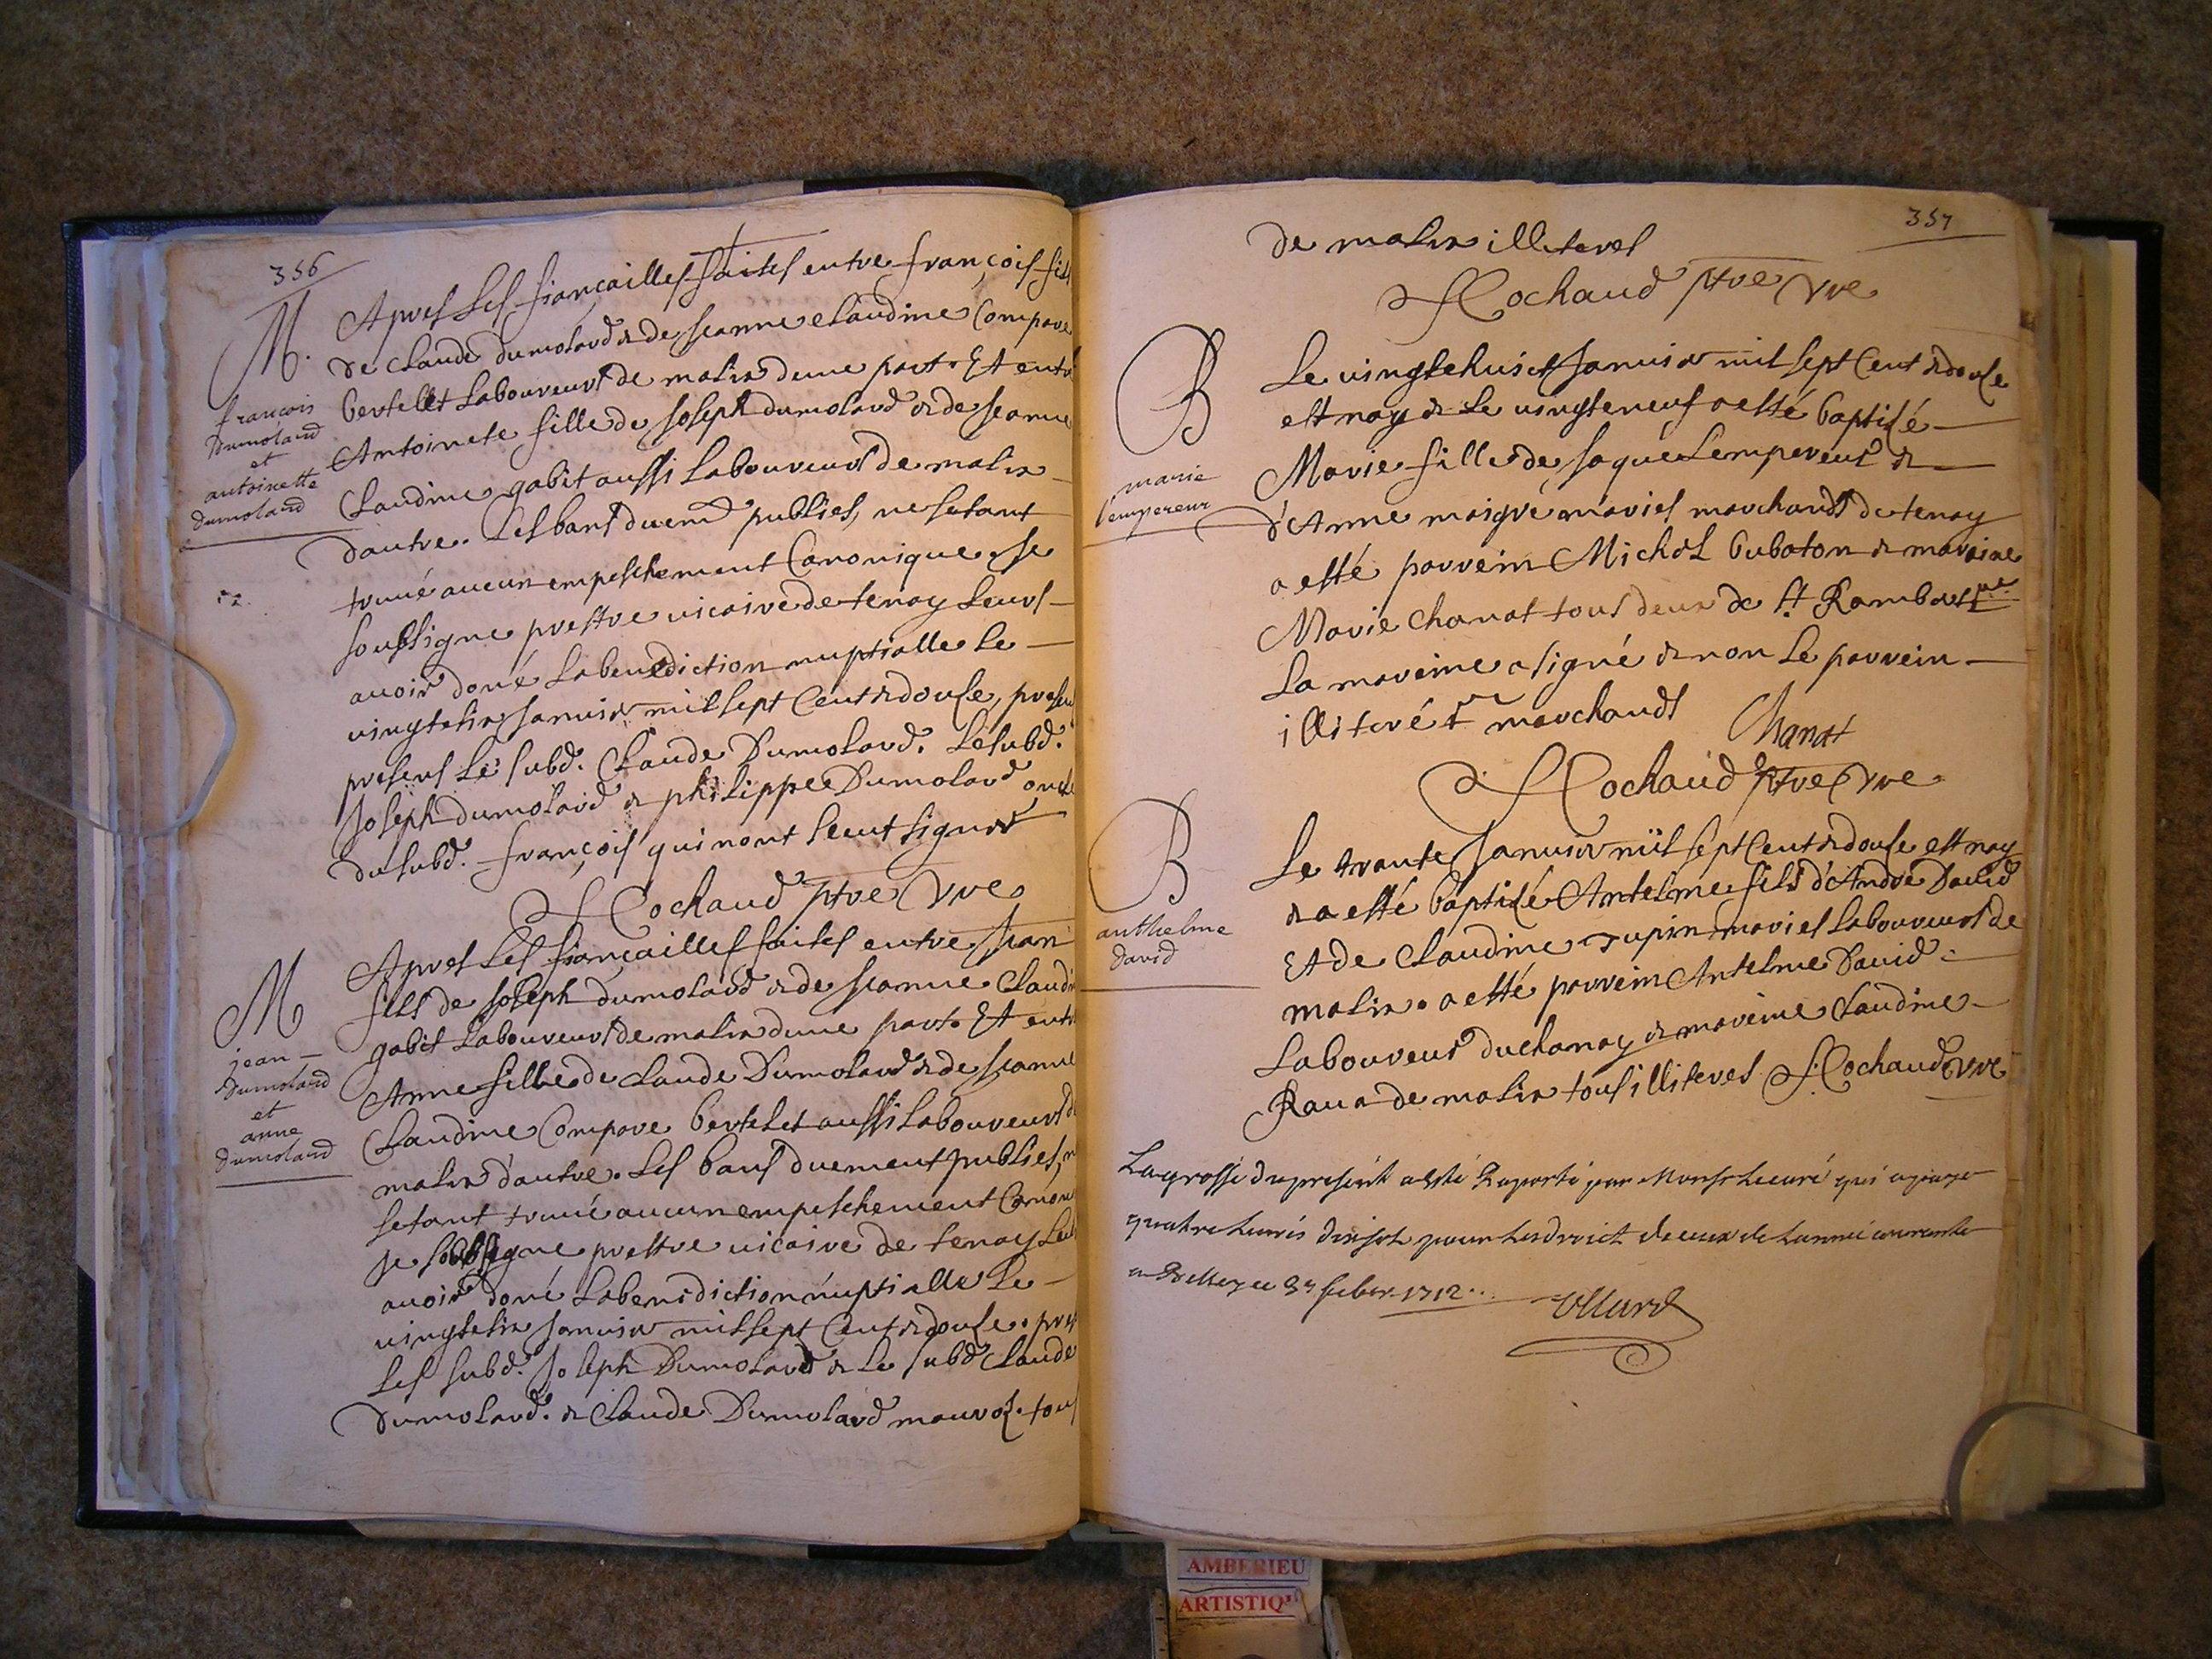 356
M.
Apres les fiançailles faites entre françois fils
de claude dumolard & de jeanne claudine Compare
bertellet laboureurs de malix dune part. Et entre
françois
dumolard
et
antoinette
dumolard
Antoinete fille de joseph dumolard & de jeanne
Claudine gabit aussi laboureurs de malix
dautre. Les bans duem.t publies, ne sétant
trouué aucun empeschement Canonique je
soubsigne prestre uicaire de tenay leurs
auoir doné la benediction nuptialle le
uingtesix januier mil sept Cent & douse,
presens le subd. Claude Dumolard. le subd.
Joseph dumolard & philippe Dumolard oncle
du subd. françois qui nont sceut signer
Cochaud ptre vre
M
jean
dumolard
et
anne
dumolard
Apres les fiançailles faites entre jean
fils de joseph dumolard & de jeanne Claudine
gabit laboureurs de malix dune part. Et entre
Anne fille de claude Dumolard & de jeanne
Claudine Compare bertelet aussi laboureurs de
malix dautre. les bans duement publies, n
setant trouué aucun empeschement Canon
je soubsigne prestre uicaire de tenay leur
auoir doné la benediction nuptialle le
uingtesix januier mil sept Cent & douse. pres
les subd. joseph Dumolard & le subd Claude
dumolard. & Claude Dumolard tous
357
de malix illiteres
Cochaud ptre vre
B
marie
lempereur
Le uingtehuict januier mil sept Cent & douse
est nay & le uingteneuf a esté baptisé
Marie fille de jaque Lempereur &
d'Anne maigre maries marchands de tenay
a esté parrein Michel bubaton & mareine
Marie chanat tous deux de st Rambert
la mareine a signé & non le parrein
illiteré & marchands
Chanat
Cochaud ptre vre
B
anthelme
david
Le trante januier mil sept Cent & douse est nay
& a esté baptisé Antelme fils d'André Dauid
Et de Claudine Tupin maries laboureurs de
malix. a esté parrein Antelme Dauid
laboureur du chanay & mareine Claudine
Raua de malix tous illiteres Cochaud vre
La grosse du present a esté raporté par Monsr le curé qui a payé
quatre liures dix sols pour les droict de ceux de lannée courante
a Belley ce febvr. 1712